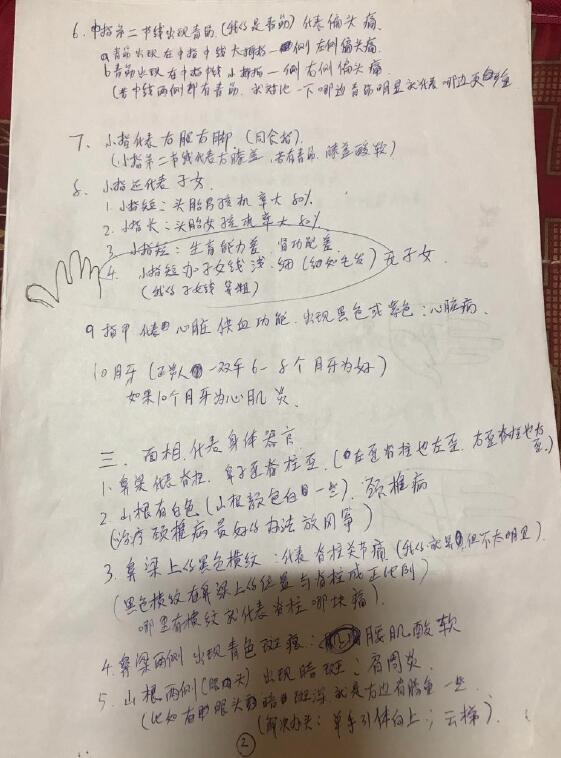 6. 中指第二节线出现青筋(我的是青筋)代表偏头痛.
a 青筋出现在中指中线大拇指一侧 左侧偏头痛.
b 青筋出现在中指中线小拇指一侧 右侧偏头痛
(若中线两侧都有青筋. 就对比一下哪边青筋明显就代表哪边更严重
7. 小指代表右腿右脚. (同食指).
(小指第二节线代表右膝盖, 若有青筋. 膝盖酸软)
8. 小指还代表子女.
1. 小指短: 头胎男孩机率大 80%
2. 小指长: 头胎女孩机率大 80%
3 小指短: 生育能力差. 肾功能差.
4. 小指短加子女线浅.细(细如毛发) 无子女.
(我的子女线 算粗)
9 指甲代表心脏供血功能. 出现黑色或紫色: 心脏病.
10 月牙 (正常人 一双手 6-8个月牙为好)
如果10个月牙为心肌炎.
三. 面相.代表身体器官.
1. 鼻梁代表脊柱. 鼻子歪脊柱歪. (左歪脊柱也左歪. 右歪脊柱也右歪.)
2. 山根有白色 (山根颜色白一些). 颈椎病
(治疗颈椎病最好的办法放风筝)
3. 鼻梁上的黑色横纹: 代表脊柱关节痛 (我的就是, 但不太明显).
(黑色横纹在鼻梁上的位置与脊柱成正比例)
哪里有横纹就代表脊柱哪块痛).
4. 鼻梁两侧出现青色斑痕: 腰肌酸软
5. 山根两侧(眼内头) 出现暗斑: 肩周炎.
(比如右眼头暗斑深. 就是右边肩膀重一些.
(解决办法: 单手引体向上; 云梯).
2